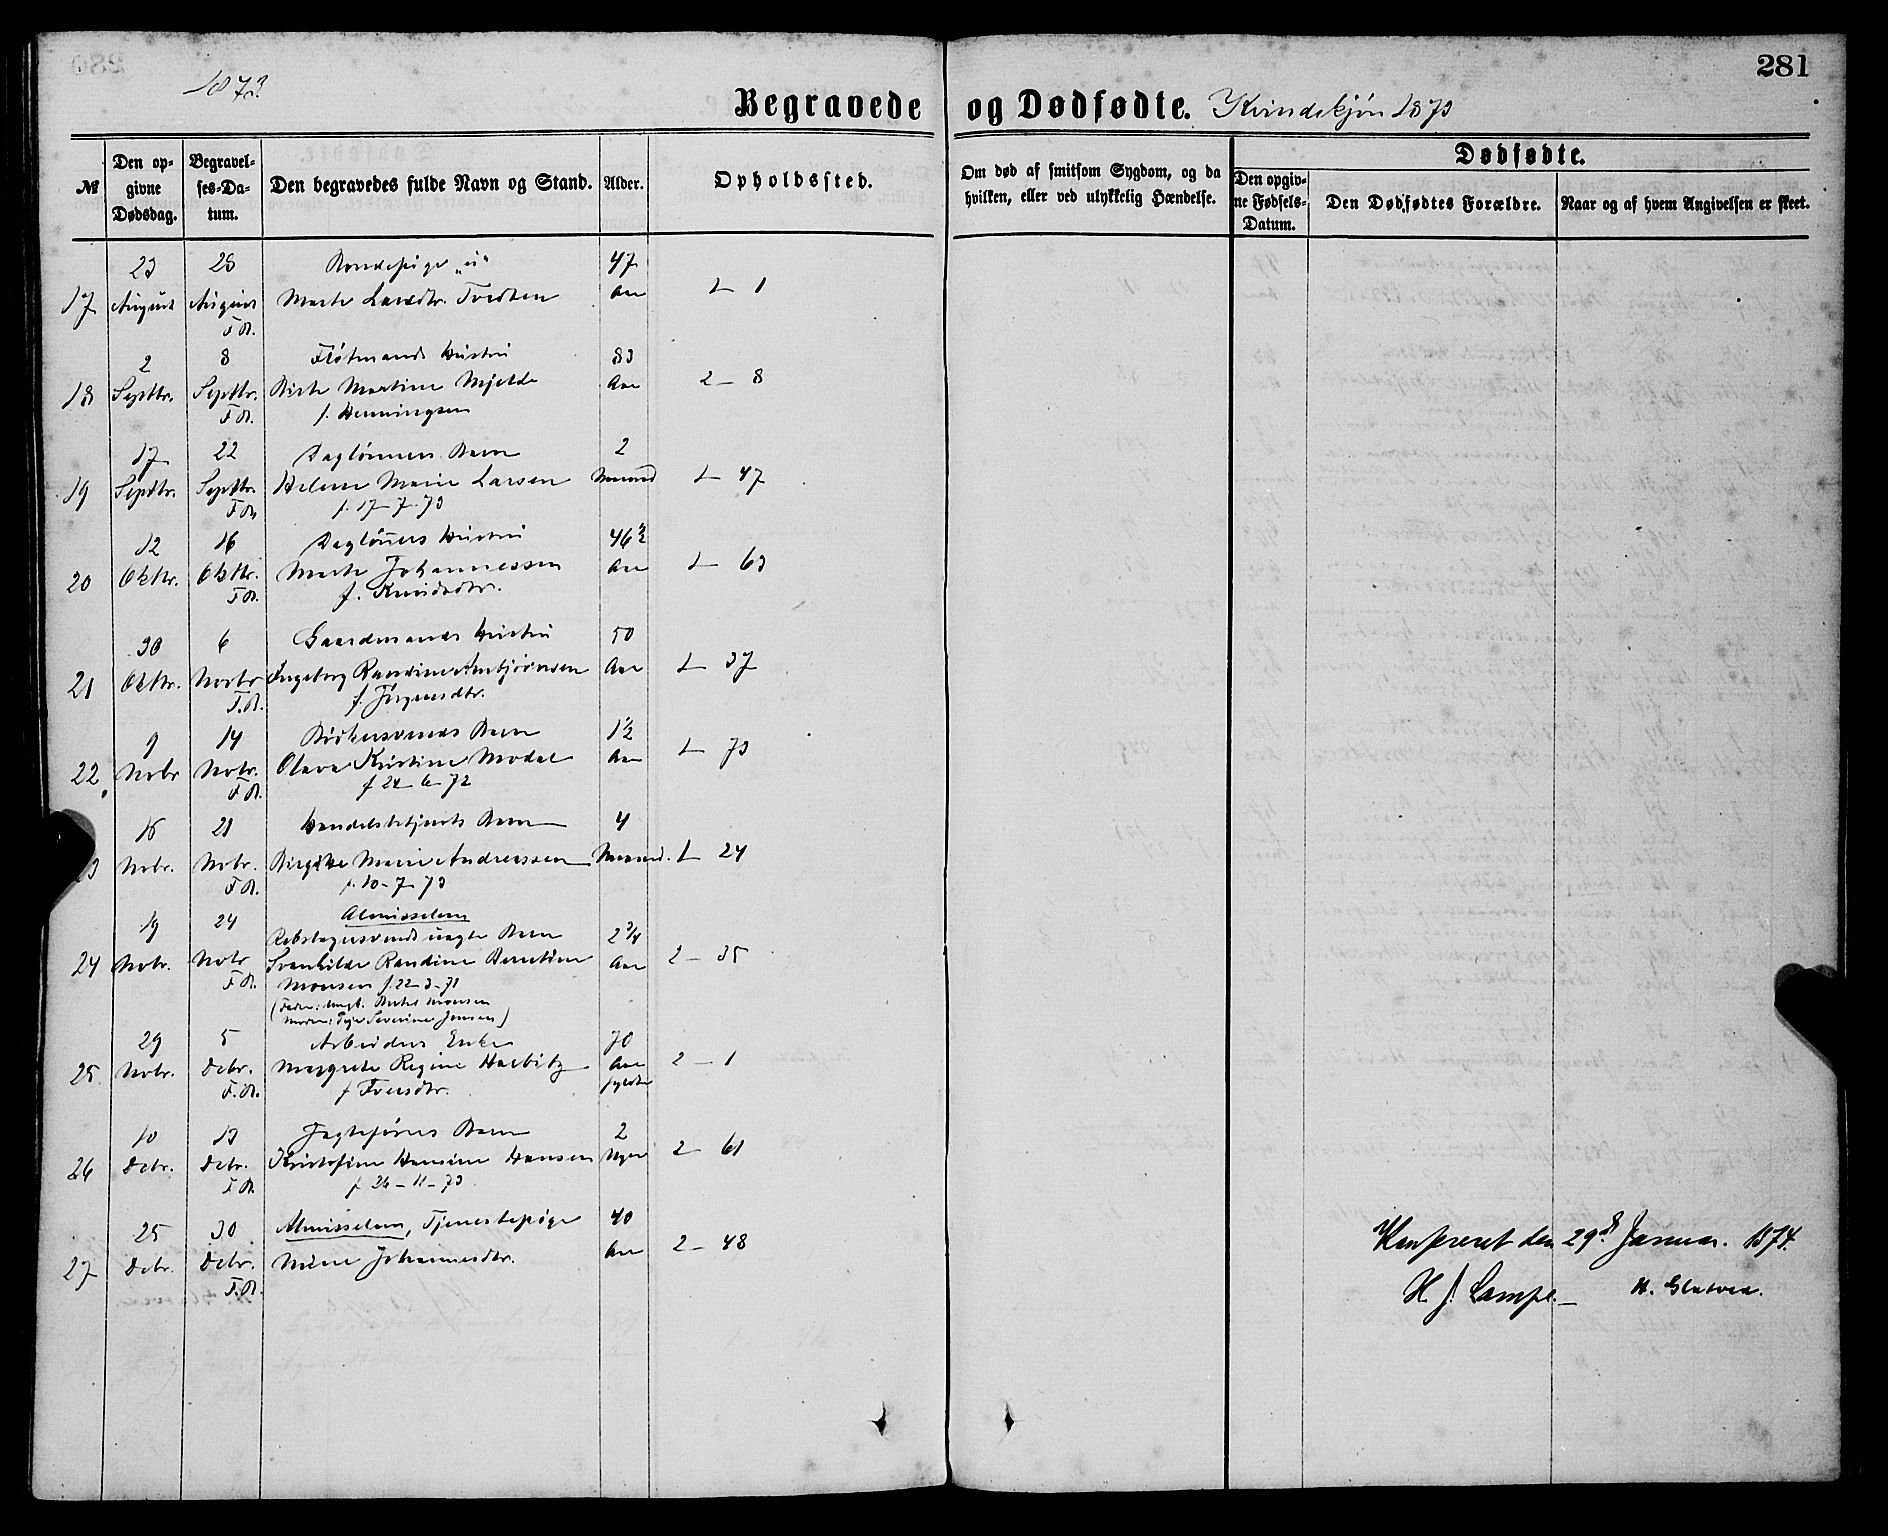 281
1873.
Begravede og Dødfødte. Kvindekjøn 1873
№
Den opgivne Dødsdag.
Begravelses-Datum.
Den begravedes fulde Navn og Stand.
Alder.
Opholdssted.
Om død af smitsom Sygdom, og da hvilken, eller ved ulykkelig Hændelse.
Dødfødte.
Den opgivne Fødsels-Datum.
Den Dødfødtes Forældre.
Naar og af hvem Angivelsen er skeet.
23 28 Bondepige 47
17 August August Marte Larsdtr. Tvedten Aar 1 – 1
2 8 Hustru 83
18 Septbr. Septbr. Martine Mjelde Aar 2 – 8
f. Henningsen
17 22 Daglønners Barn 2
19 Septbr. Septbr. Helene Marie Larsen Maaned 1 – 47
f. 17-7-73
12 16 Dagløners Hustru 46½
20 Oktbr. Oktbr. Marte Johannessen Aar 1 – 63
f. Knudsdtr.
30 6 Gaardmands Hustru 50
21 Oktbr. Novbr Ingeborg Randine Aar 1 – 37
f. Jørgensdtr.
9 14 Barn 1½
22 Novbr Novbr. Olava Kristine Modal Aar 1 – 73
f 24-6-72
16 21 Handelsbetjents Barn 4
Novbr. Novbr. Birgitte Marie Andreassen Maaned. 1 – 24
f. 10-7-73
19 24 Almisselem
Rebslagersvends uægte Barn 2¾
24 Novbr. Novbr Svanhilde Randine Berntine Aar 2 – 35
Monsen f. 22-3-71
(Fader: Ungk. Monsen
Moder: Pige Severine Jensen)
29 5 Arbeiders Enke 70
25 Novbr. Debr. Margrete Regine Harbitz Aar 2 – 1
f Iversdtr. fyldte
10 13 Barn 2
26 Debr. Debr. Kristofine Hansine Hansen Uger 2 – 61
f 26-11-73
25 30 Almisselem, Tjenestepige 40
27 Debr. Debr. Johannesdtr. Aar 2 – 48
Konfereret den 29de Januar. 1874.
H. J. Lampe. –